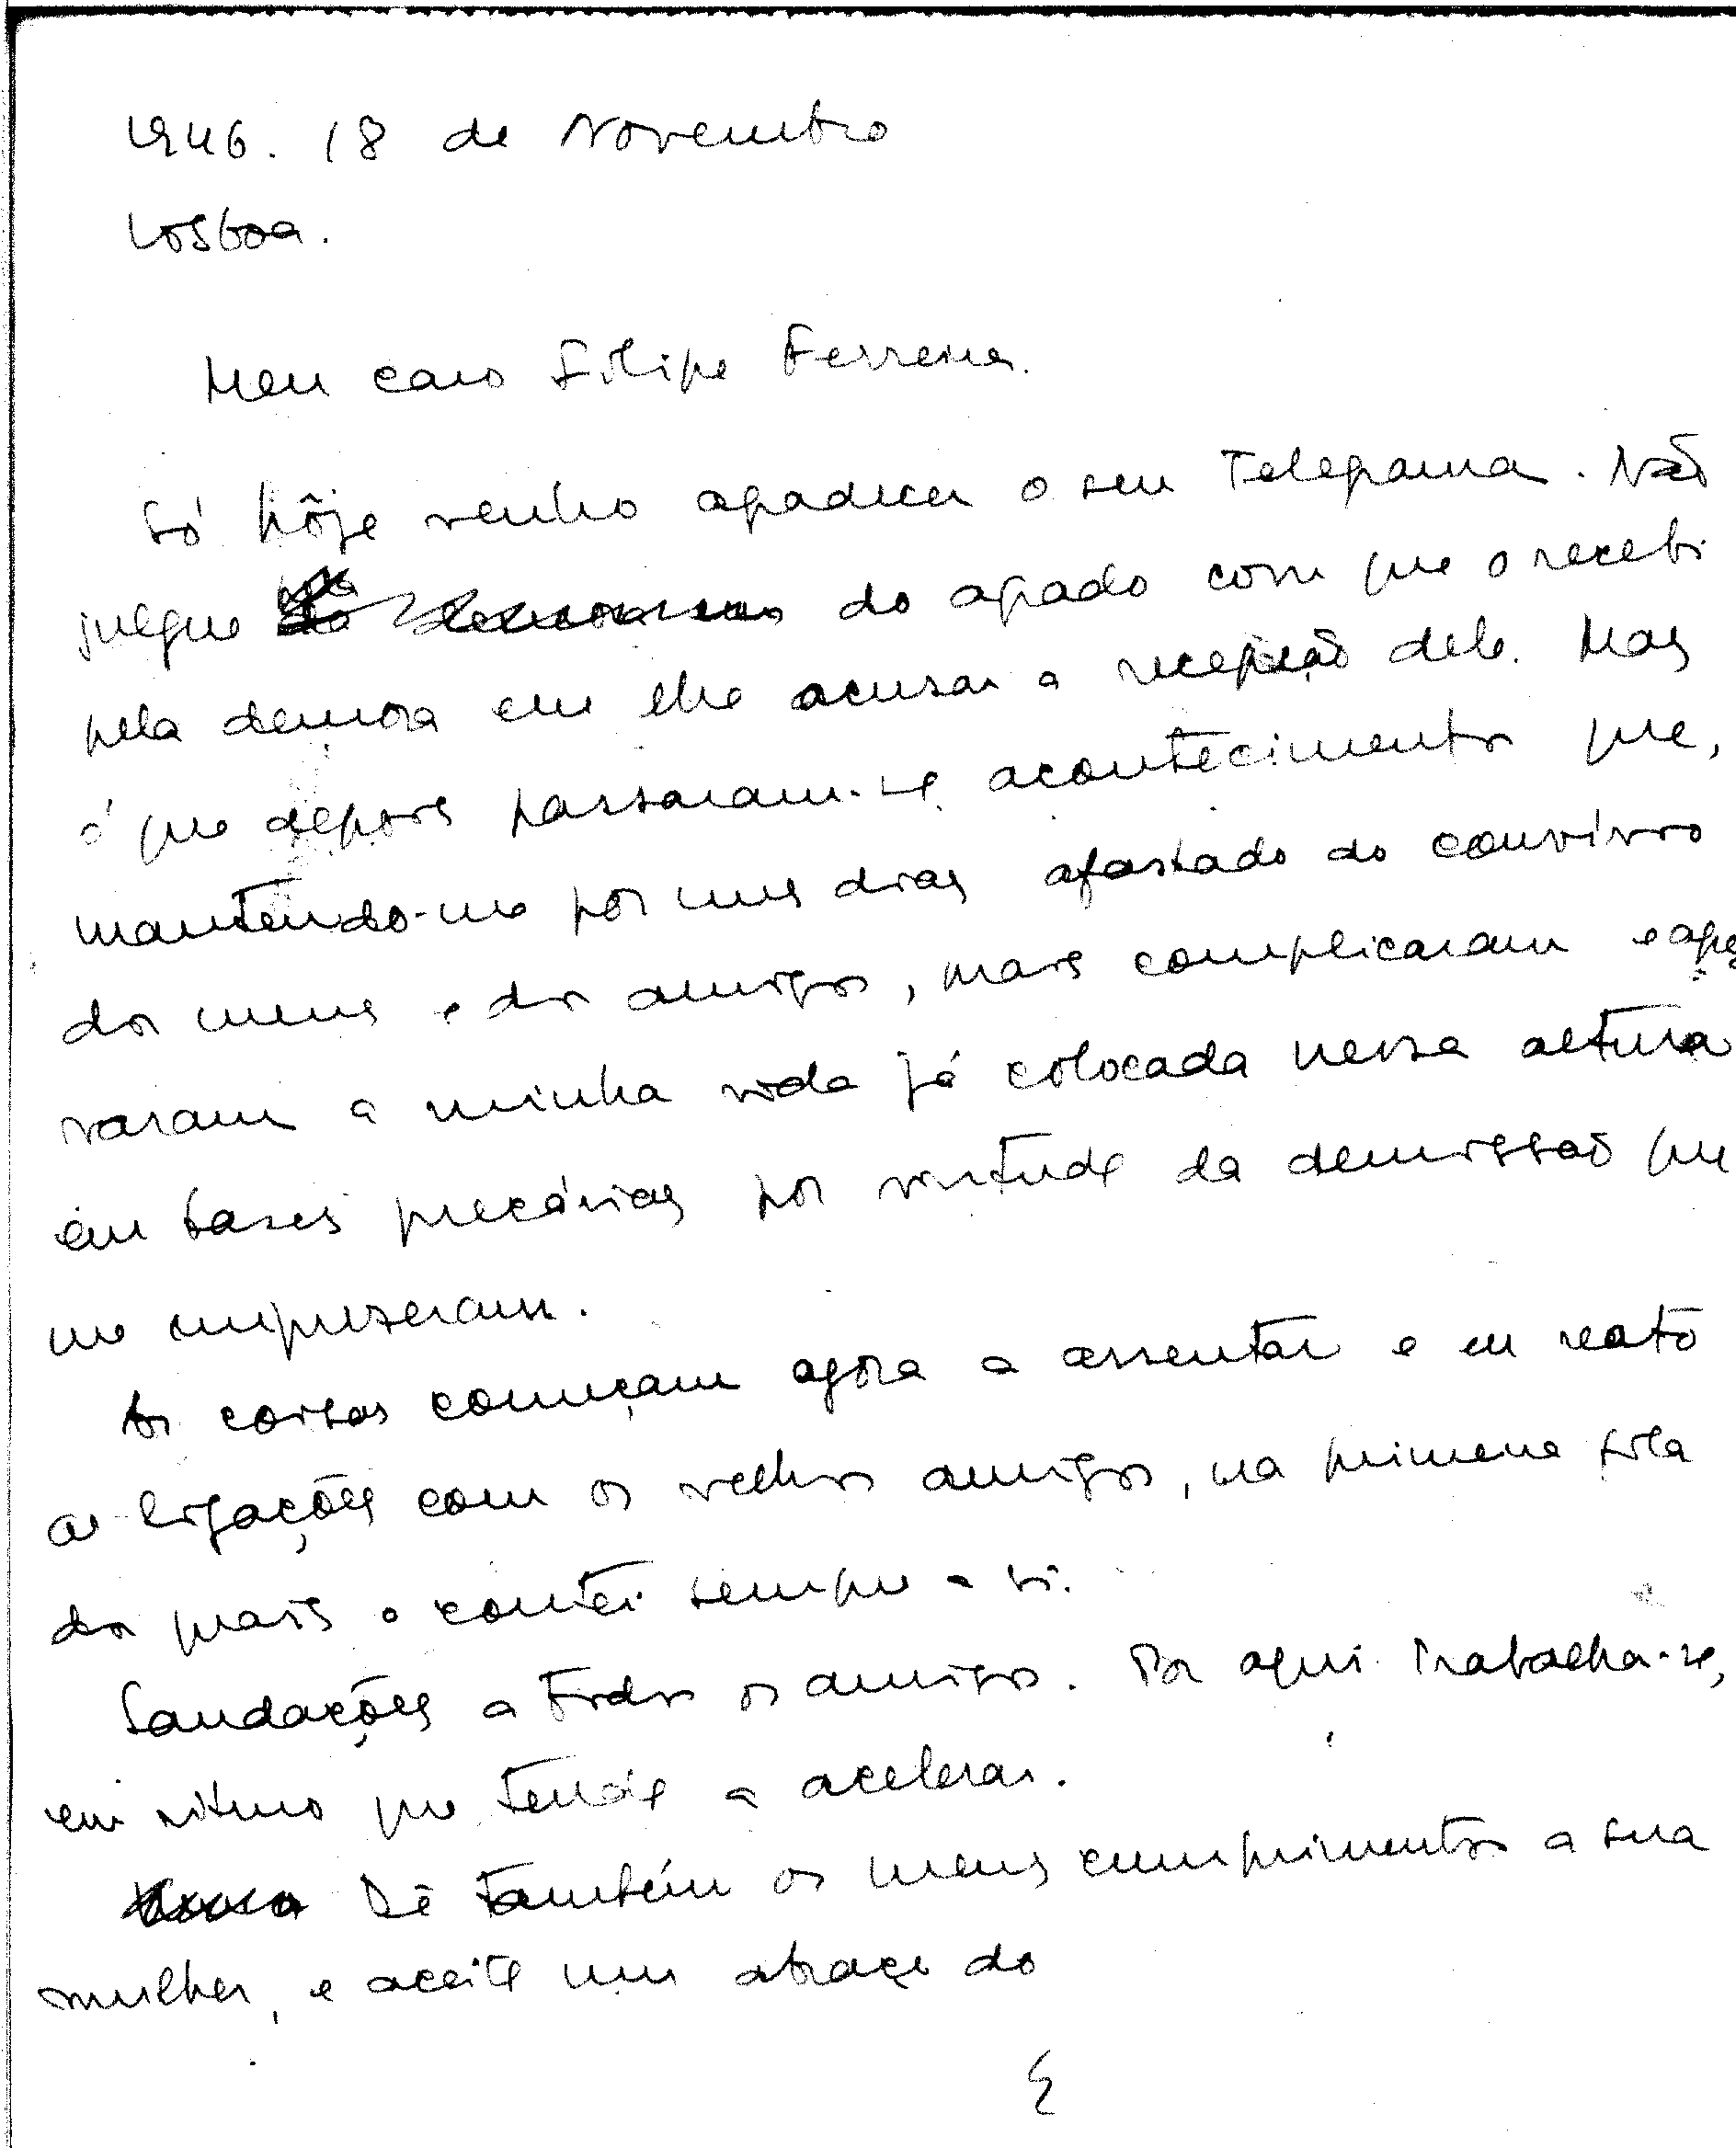 1946. 18 de Novembro
Lisboa.
Meu caro Filipe Ferreira.
Só hôje venho agradecer o seu Telegrama. Não
julgue do agrado com que o recebi
pela demora em lhe acusar a recepção dele. Mas
é que depois passaram-se acontecimentos que,
mantendo-me por uns dias afastado do convívio
dos meus e dos amigos, mais complicaram e agra
varam a minha vida já colocada nessa altura
em bases precárias por virtude da demissão que
me impuseram.
As coisas começam agora a assentar e eu reato
as ligações com os velhos amigos, na primeira fila
dos quais o contei sempre a si.
Saudações a todos os amigos. Por aqui trabalha-se,
em ritmo que tende a acelerar.
Dê também os meus cumprimentos a sua
mulher, e aceite um abraço do